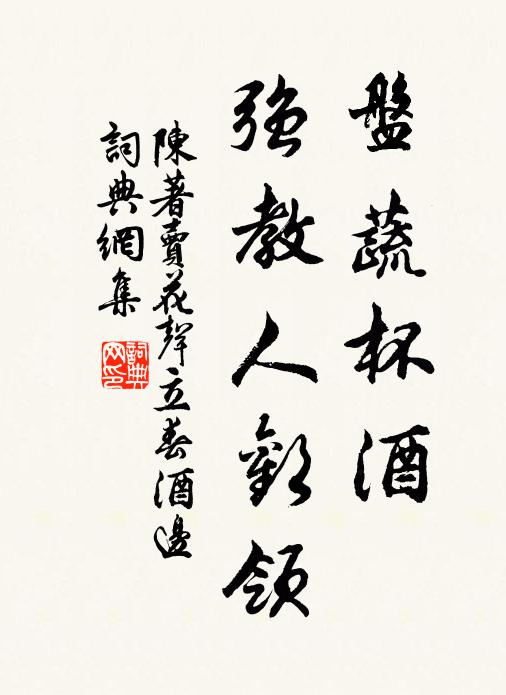 盤蔬杯酒
強教人歡領
陳著賣花聲立春酒邊
詞典網集
詞典网印